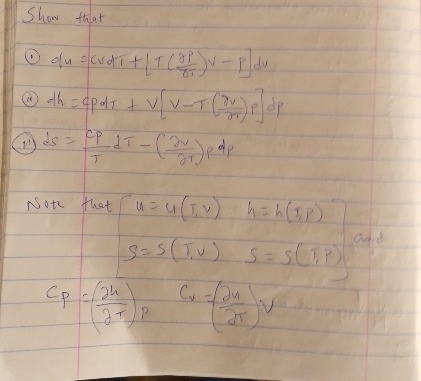 Show that
① du = cvdT + [T(∂P/∂T)v - P]dv
② dh = cpdT + V[V-T(∂v/∂T)p]dp
③ ds = cp/T dT - (∂v/∂T)p dp
Note that [u = u(T,v) h = h(T,P)
S = S(T,v) S = S(T,P)] and
Cp = (∂h/∂T)p Cv = (∂u/∂T)v